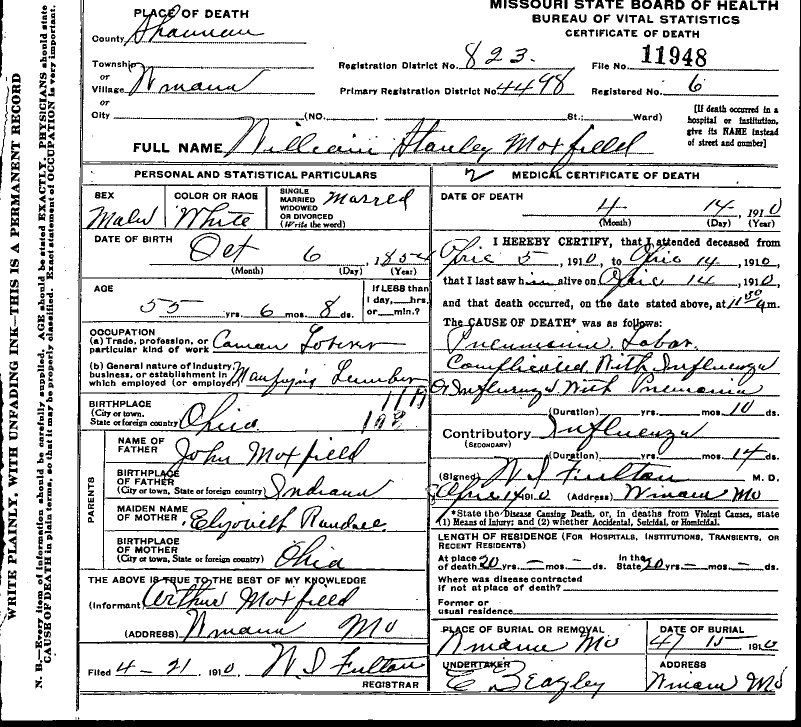 MISSOURI STATE BOARD OF HEALTH
BUREAU OF VITAL STATISTICS
CERTIFICATE OF DEATH
PLACE OF DEATH
County Shannon
Township
or
Village Winona
or
City (NO. St.; Ward)
Registration District No. 823.
File No. 11948
Primary Registration District No. 4498
Registered No. 6
[If death occurred in a
hospital or institution,
give its NAME instead
of street and number]
FULL NAME William Stanley Moxfield
PERSONAL AND STATISTICAL PARTICULARS
SEX
Male
COLOR OR RACE
White
SINGLE
MARRIED
WIDOWED
OR DIVORCED
(Write the word)
Married
DATE OF BIRTH
Oct 6, 1854
(Month) (Day) (Year)
AGE
55 yrs. 6 mos. 8 ds.
If LESS than
1 day, hrs.
or min.?
OCCUPATION
(a) Trade, profession, or
particular kind of work Common Laborer
(b) General nature of industry,
business, or establishment in
which employed (or employer) Lumber
BIRTHPLACE
(City or town,
State or foreign country) Ohio
PARENTS
NAME OF
FATHER John Moxfield
BIRTHPLACE
OF FATHER
(City or town, State or foreign country) Indiana
MAIDEN NAME
OF MOTHER
BIRTHPLACE
OF MOTHER
(City or town, State or foreign country) Ohio
THE ABOVE IS TRUE TO THE BEST OF MY KNOWLEDGE
(Informant) Arthur Moxfield
(ADDRESS) Winona Mo
Filed 4-21 1910, W. S. Fulton
REGISTRAR
2 MEDICAL CERTIFICATE OF DEATH
DATE OF DEATH
4 14, 1910
(Month) (Day) (Year)
I HEREBY CERTIFY, that I attended deceased from
Apric 5, 1910, to Apric 14, 1910,
that I last saw him alive on Apric 14, 1910,
and that death occurred, on the date stated above, at 11 30 a m.
The CAUSE OF DEATH* was as follows:
Pneumonia Lobar
Complicated With Influenza
Or Influenza With Pnemonia
(Duration) yrs. mos. 10 ds.
Contributory Influenza
(SECONDARY)
(Duration) yrs. mos. 14 ds.
(Signed) W S Fulton M. D.
Apric 14, 1910 (Address) Winona Mo
*State the Disease Causing Death, or, in deaths from Violent Causes, state
(1) Means of Injury; and (2) whether Accidental, Suicidal, or Homicidal.
LENGTH OF RESIDENCE (For Hospitals, Institutions, Transients, or
Recent Residents)
At place
of death 20 yrs. - mos. - ds.
In the
State 20 yrs. - mos. - ds.
Where was disease contracted
if not at place of death?
Former or
usual residence
PLACE OF BURIAL OR REMOVAL
Winona Mo
DATE OF BURIAL
4 15 1910
UNDERTAKER
E Beazley
ADDRESS
Winona Mo
WRITE PLAINLY, WITH UNFADING INK—THIS IS A PERMANENT RECORD
N. B.—Every item of information should be carefully supplied. AGE should be stated EXACTLY. PHYSICIANS should state
CAUSE OF DEATH in plain terms, so that it may be properly classified. Exact statement of OCCUPATION is very important.